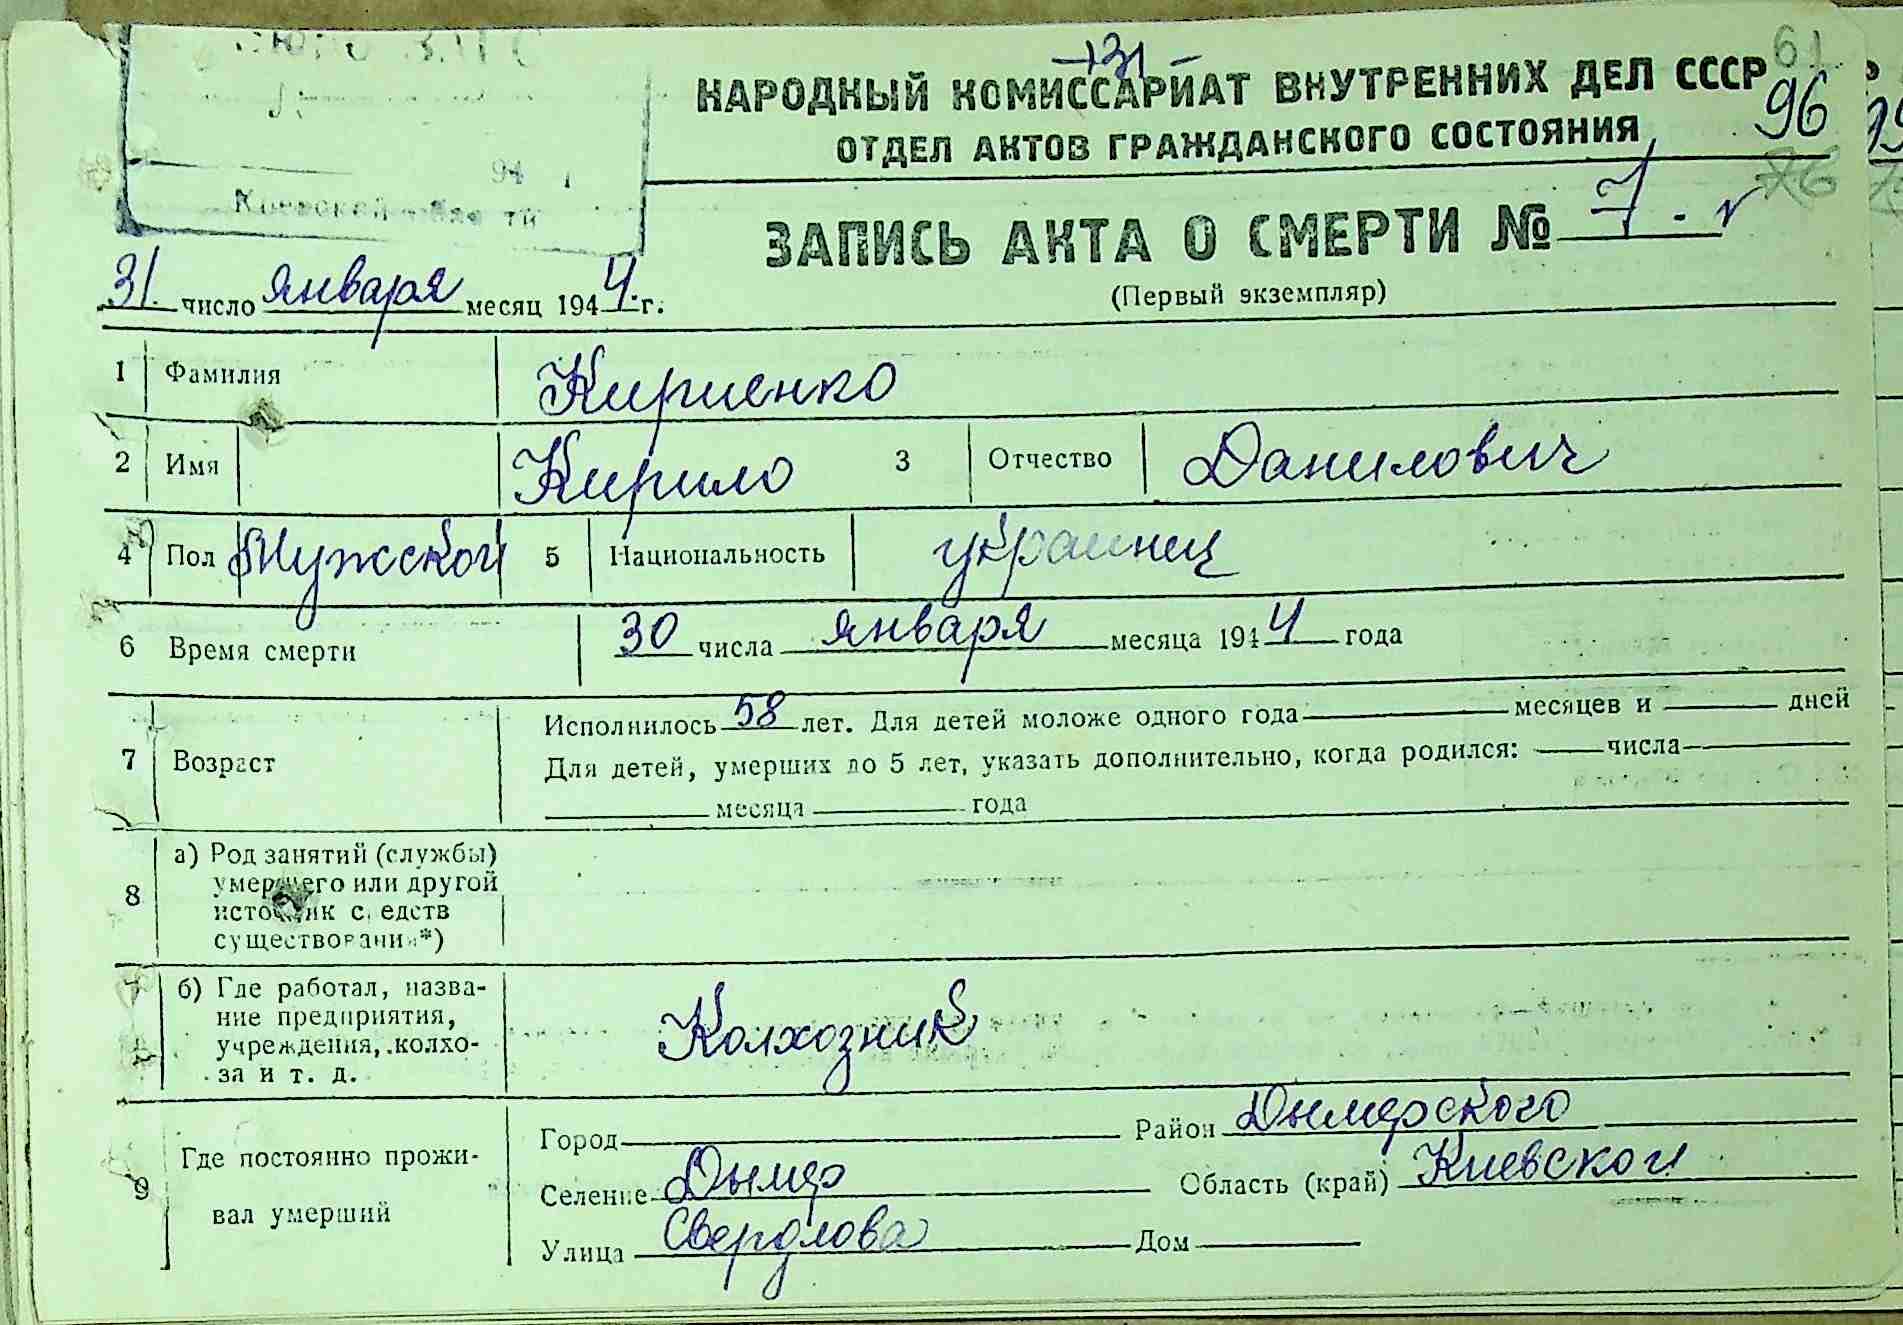 -131-
61
НАРОДНЫЙ КОМИССАРИАТ ВНУТРЕННИХ ДЕЛ СССР
96
ОТДЕЛ АКТОВ ГРАЖДАНСКОГО СОСТОЯНИЯ
76
Киевской области
ЗАПИСЬ АКТА О СМЕРТИ № 7
(Первый экземпляр)
31 число января месяц 1944 г.
1 Фамилия Кириенко
2 Имя Кирило 3 Отчество Данилович
4 Пол Мужской 5 Национальность украинец
6 Время смерти 30 числа января месяца 1944 года
7 Возраст Исполнилось 58 лет. Для детей моложе одного года месяцев и дней
Для детей, умерших до 5 лет, указать дополнительно, когда родился: числа
месяца года
8 а) Род занятий (службы)
умершего или другой
источник средств
существования*)
б) Где работал, назва-
ние предприятия,
учреждения, колхо-
за и т. д.
Колхозник
9 Где постоянно прожи-
вал умерший
Город Район Дымерского
Селение Дымер Область (край) Киевской
Улица Свердлова Дом